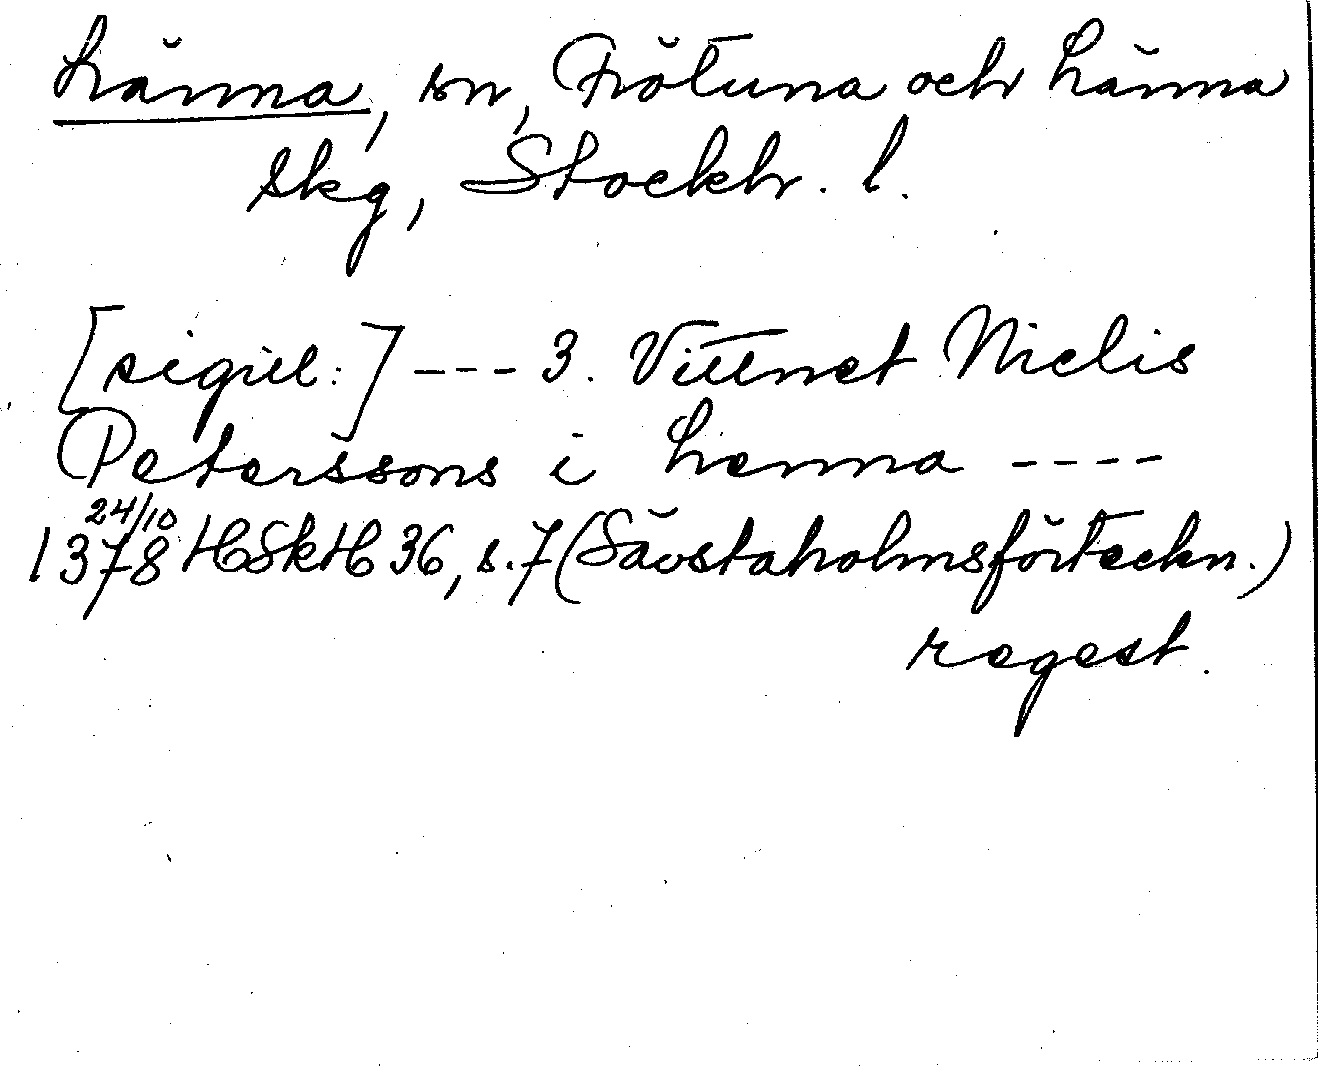 Länna, sn, Frötuna och Länna
skg, Stockh. l.
[sigill:] --- 3. Vittnet Nielis
Peterssons i Lenna ----
24/10
1378 HSkH 36, s. 7 (Sävstaholmsförteckn.)
regest.